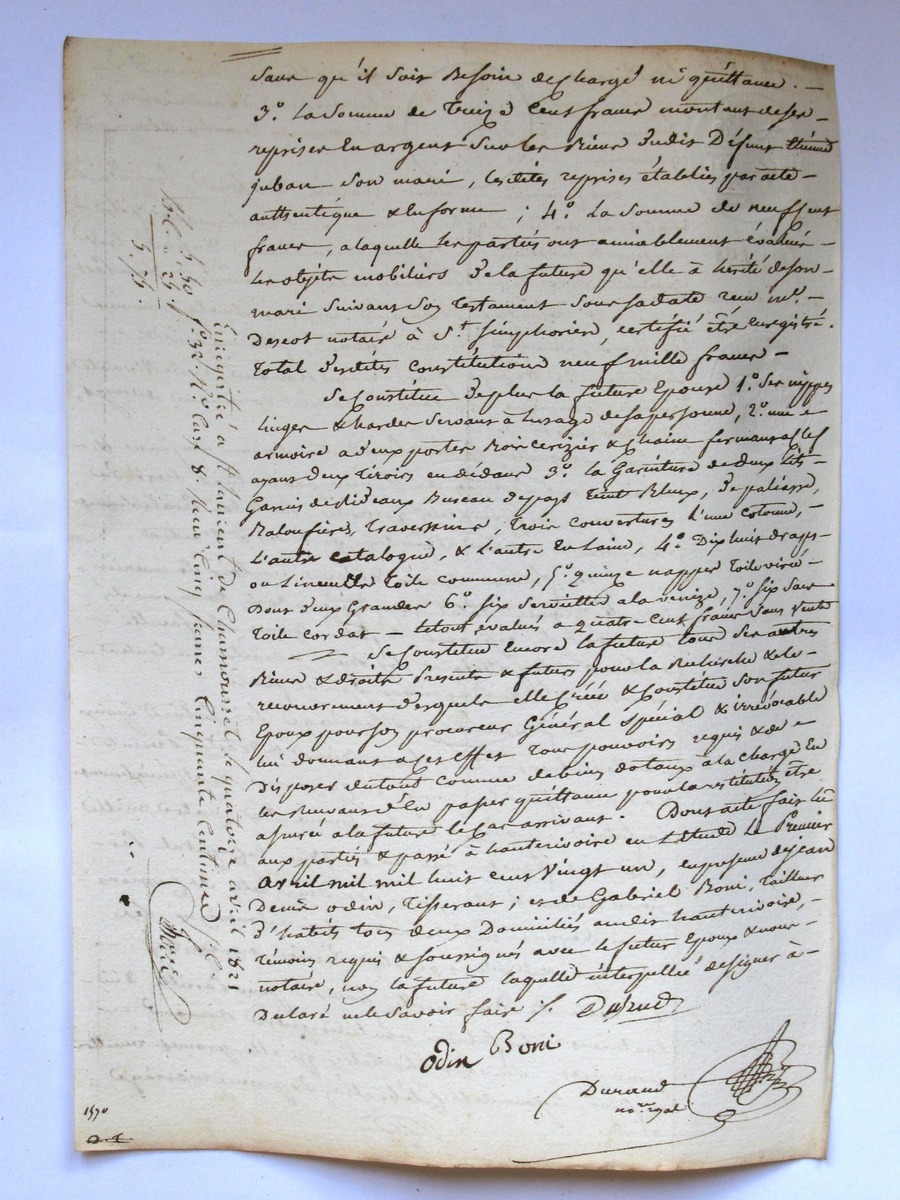 sans qu'il soit Besoin de charge ni quittance. —
3.º La Somme de Treize Cent francs montant de ses
reprises En argent sur les Biens dudit Défunt
juban Son mari, lesdites reprises établies par acte
authentique & en forme ; 4.º La Somme de neuf Cent
francs, a laquelle les parties ont amiablement évalué
les objets mobiliers de la future qu'elle à hérité de son
mari Suivant Son Testament Sous sa date reçu mᵉ.
notaire à Sᵗ. Simphorien, certifié être Enregistré.
Total desdites Constitutions neuf mille francs —
Se Constitue de plus la future Epouse 1.º Ses nippes
linges & hardes Servant à lusage de sa personne, 2.º une
armoire a deux portes Bois cerizier & fermant a clef
ayant deux Tiroirs en dedans 3.º la Garniture de deux Lits
Garnis de Rideaux Bureau de pays Teint Bleux, de paliasse,
Traversins, Trois couvertures L'une cotonne,
L'autre catalogne, & L'autre En Laine, 4.º Dix huit draps
ou Linceulls Toile commune, 5.º quinze nappes Toile
dont deux Grandes 6.º Six Serviettes a la venize, 7.º Six Sacs
Toile cordat — le tout évalués a quatre Cent francs Sans vente
Se Constitue Encore la future tous Ses autres
Biens & droits Présents & futurs pour la Recherche & le
recouvrement desquels elle Créé & Constitue Son futur
Epoux pour Son procureur Général Spécial & irrévocable
lui donnant a cet effet Tous pouvoirs requis & de
Disposer du tout Comme de biens dotaux à la charge En
les recevant d'En passer quittance pour la restitution être
assurée a la future le Cas arrivant. Dont acte fait lu
aux parties & passé à hauterivoire en L'étude le Premier
avril mil mil huit cent Vingt un, en présence de jean
Denis odin, Tisserant ; et de Gabriel Boni, Tailleur
d'habits tous deux Domiciliés audit hauterivoire,
Témoins requis & soussignés avec le futur Epoux & nous
notaire, non la future laquelle interpellée de signer à
Declaré ne le Savoir faire
odin Boni
Durand
no.ʳᵉ royal
Enregistré a St Laurent de Chamousset le quatorze avril 1821
fº. 32. Rº. Case 8. Reçu Cinq francs Cinquante Centimes
5. 50
1570